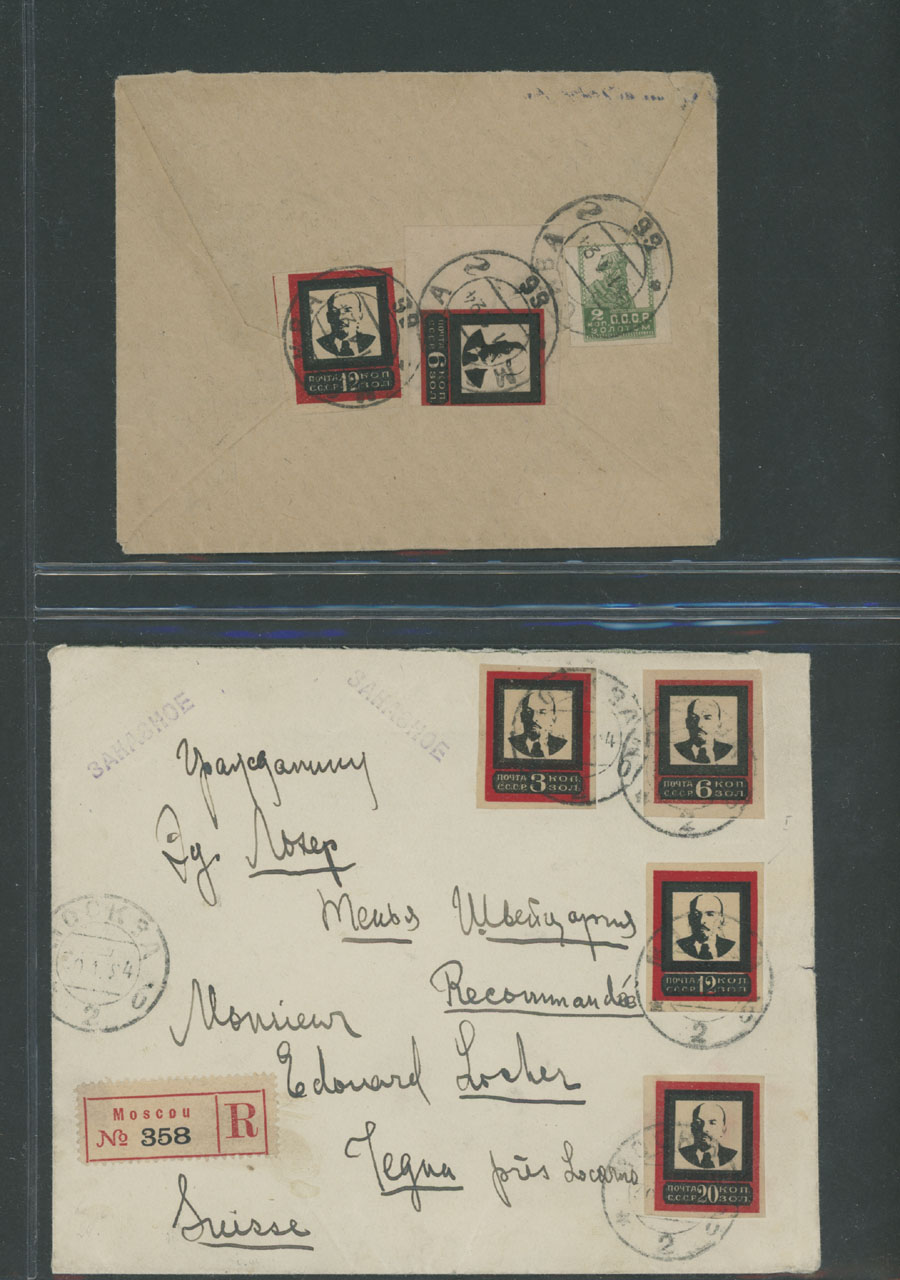 2
99
2
99
МОСКВА
2 О.С.С.Р.
КОП ЗОЛОТОМ
ПОЧТА 12 КОП
СССР ЗОЛ.
ПОЧТА 6 КОП
СССР ЗОЛ.
ЗАКАЗНОЕ
ЗАКАЗНОЕ
Гражданину
Эд. Лохер
Тенья Швейцария
Recommandée
Monsieur
Edouard Locher
Tegna près Locarno
Suisse
ПОЧТА 3 КОП
СССР ЗОЛ.
ПОЧТА 6 КОП
СССР ЗОЛ.
ПОЧТА 12 КОП
СССР ЗОЛ.
ПОЧТА 20 КОП
СССР ЗОЛ.
МОСКВА
2
2
2
2
Moscou
№ 358 R